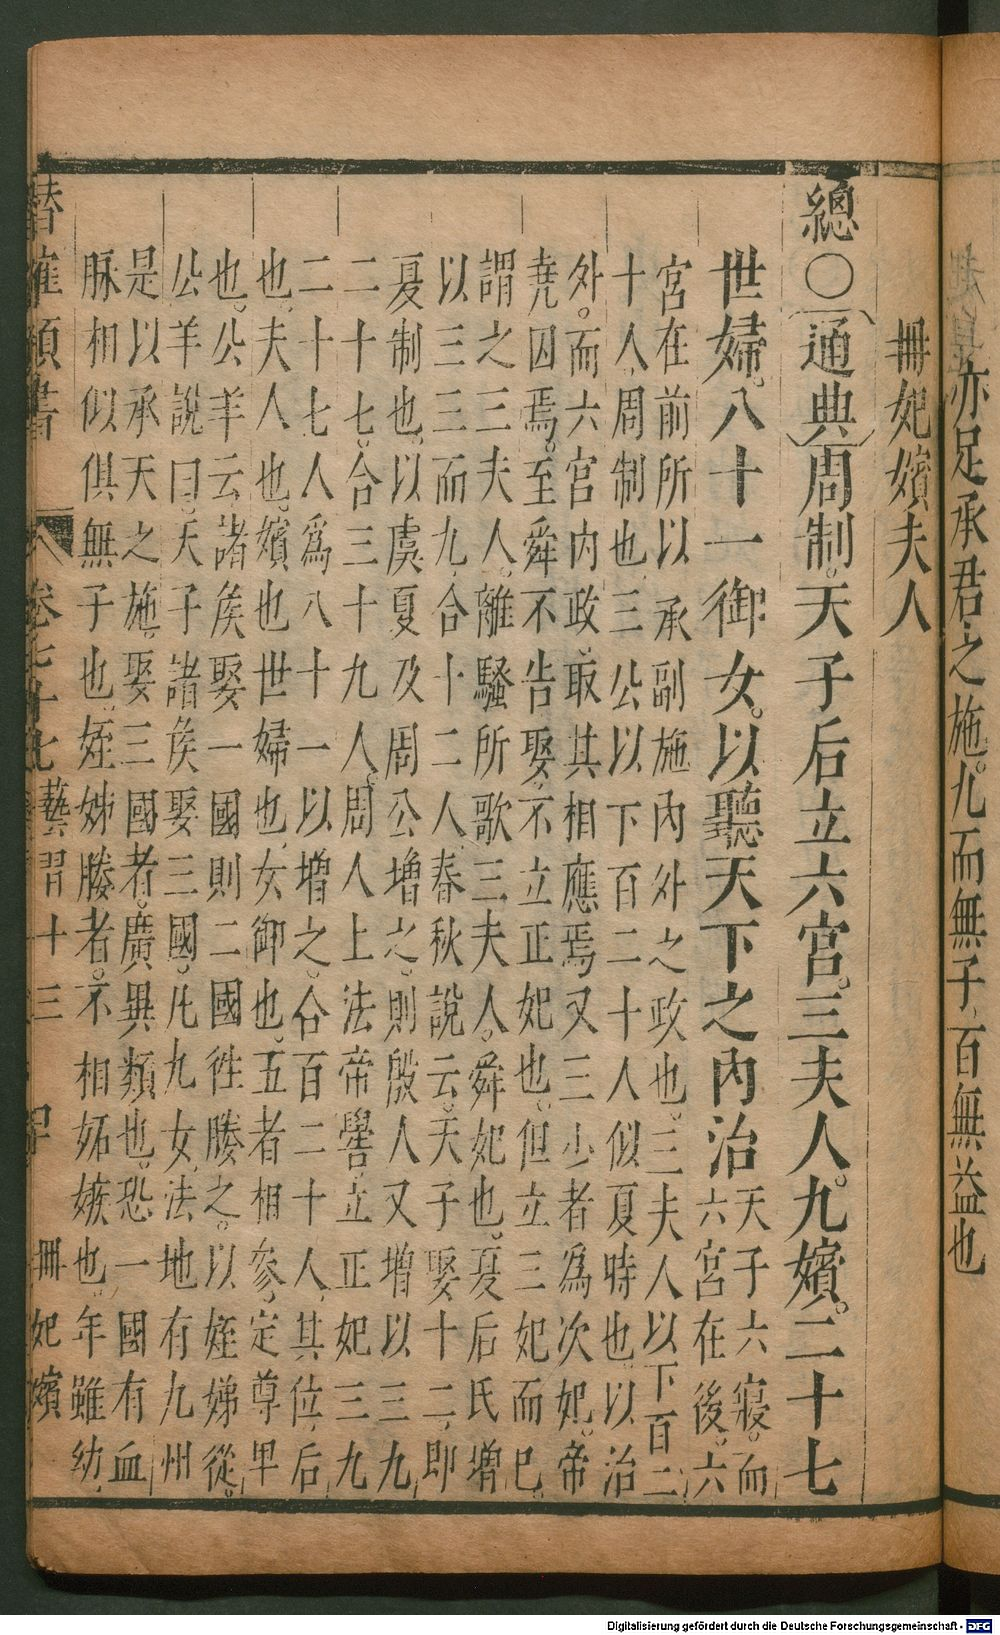 亦足承君之施。九而無子。百無益也
冊妃嬪夫人
總○〔通典〕周制。天子后立六宮。三夫人。九嬪。二十七
世婦。八十一御女。以聽天下之內治
天子六寢。而
六宮在後。六
宮在前所以承副施內外之政也。三夫人以下百二
十人。周制也。三公以下百二十人似夏時也。以治
外。而六宮內政。取其相應焉又三少者為次妃。帝
堯因焉。至舜不告娶。不立正妃也。但立三妃而已。
謂之三夫人。離騷所歌三夫人。舜妃也。夏后氏增
以三三而九。合十二人。春秋說云。天子娶十二。即
夏制也。以虞夏及周公增之。則殷人又增以三九
二十七。合三十九人。周人上法帝嚳。立正妃三九
二十七人爲八十一以增之。合百二十人。其位。后
也。夫人也。嬪也世婦也。女御也。五者相參。定尊卑
也。公羊云諸侯娶一國則二國徃媵之。以姪娣從。
公羊說曰。天子諸侯娶三國。凡九女。法地有九州
是以承天之施。娶三國者。廣異類也。恐一國有血
脉相似俱無子也。姪姊媵者。不相妬嫉也。年雖幼
確類書 卷七十七 藝習十三 冊妃嬪
Digitalisierung gefördert durch die Deutsche Forschungsgemeinschaft - DFG